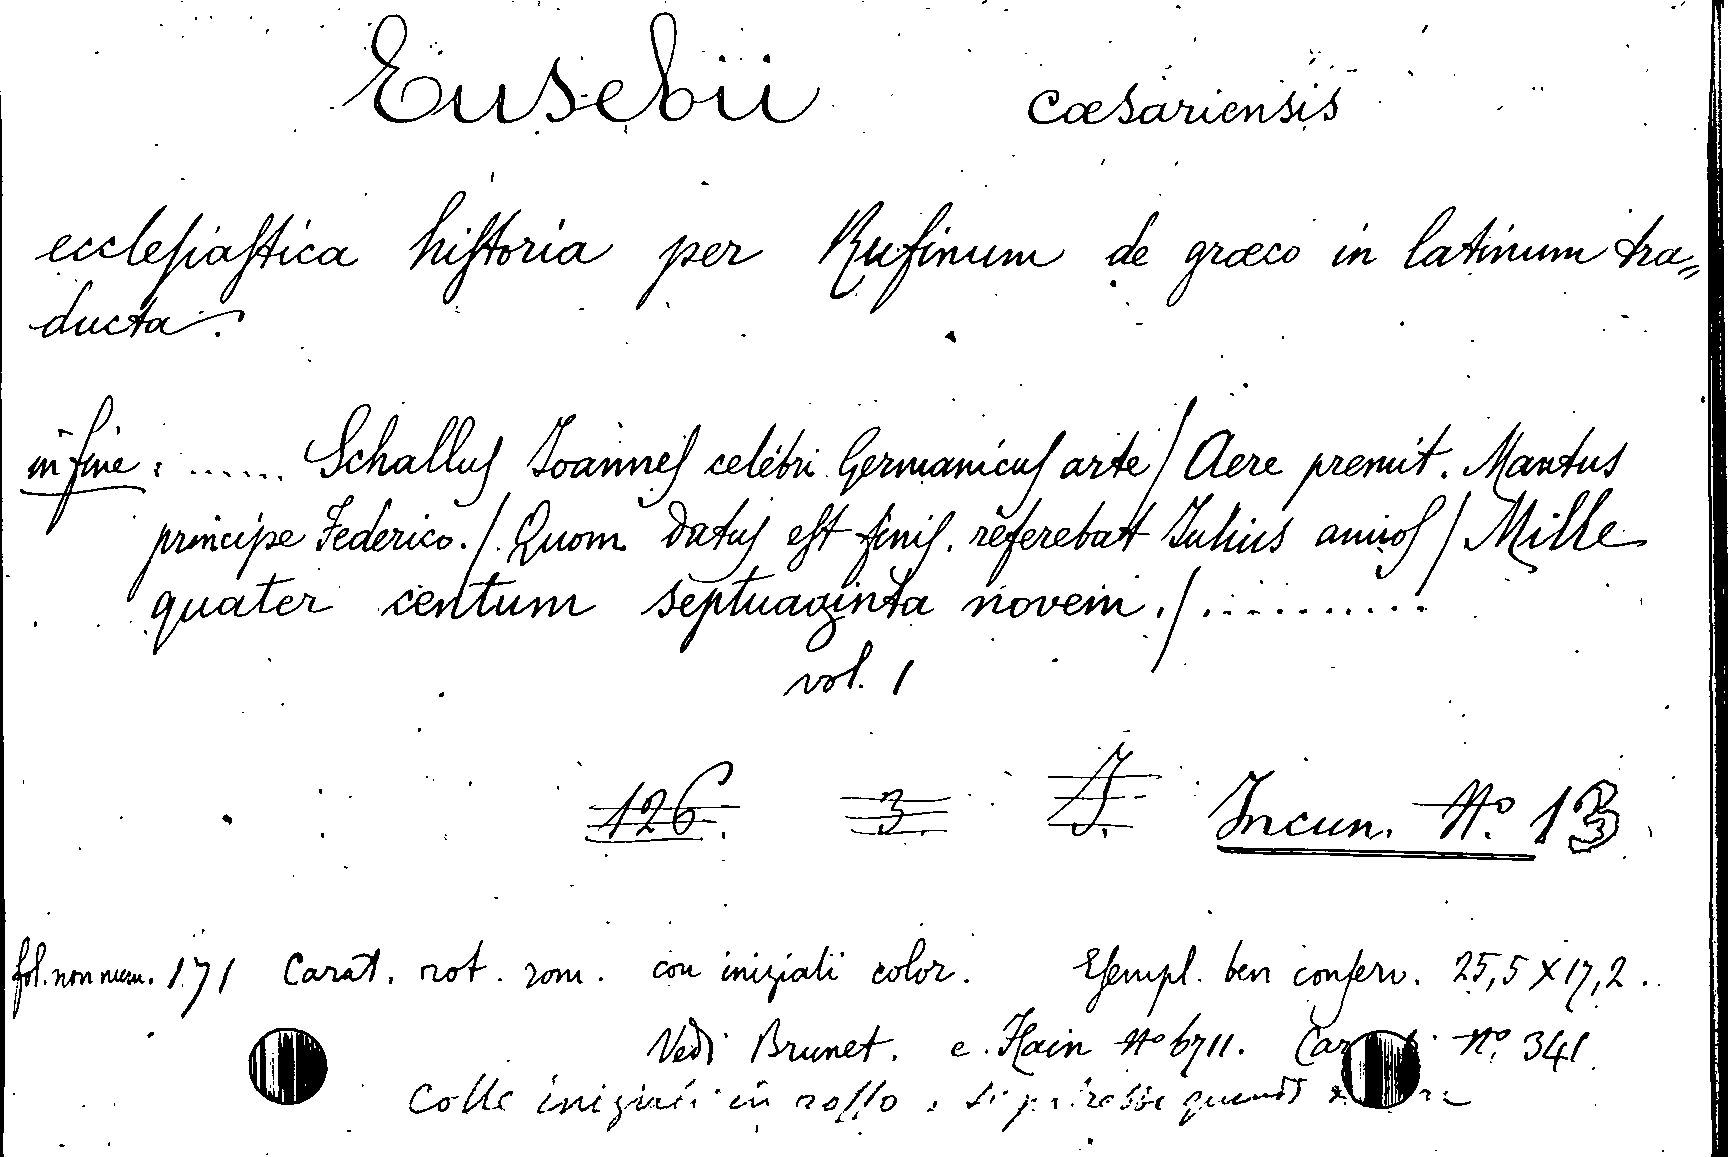 Eusebii Cæsariensis
eccleſiaſtica hiſtoria per Rufinum de græco in latinum tra„
ducta.
in fine: ...... Schalluſ Ioanneſ celébri Germanicuſ arte / Aere premit. Mantus
principe Federico. / Quom datuſ eſt finiſ. referebatt Iulius annoſ / Mille
quater centum septuaginta novem. / ..........
vol. 1
126. 3. I. Incun. Nº. 13
fol. non num. 171 Carat. rot. rom. con iniziali color. Eſempl. ben conſerv. 25,5 X 17,2.
Vedi Brunet. e. Hain Nº 6711. Nº. 341
Colle iniziali in roſſo